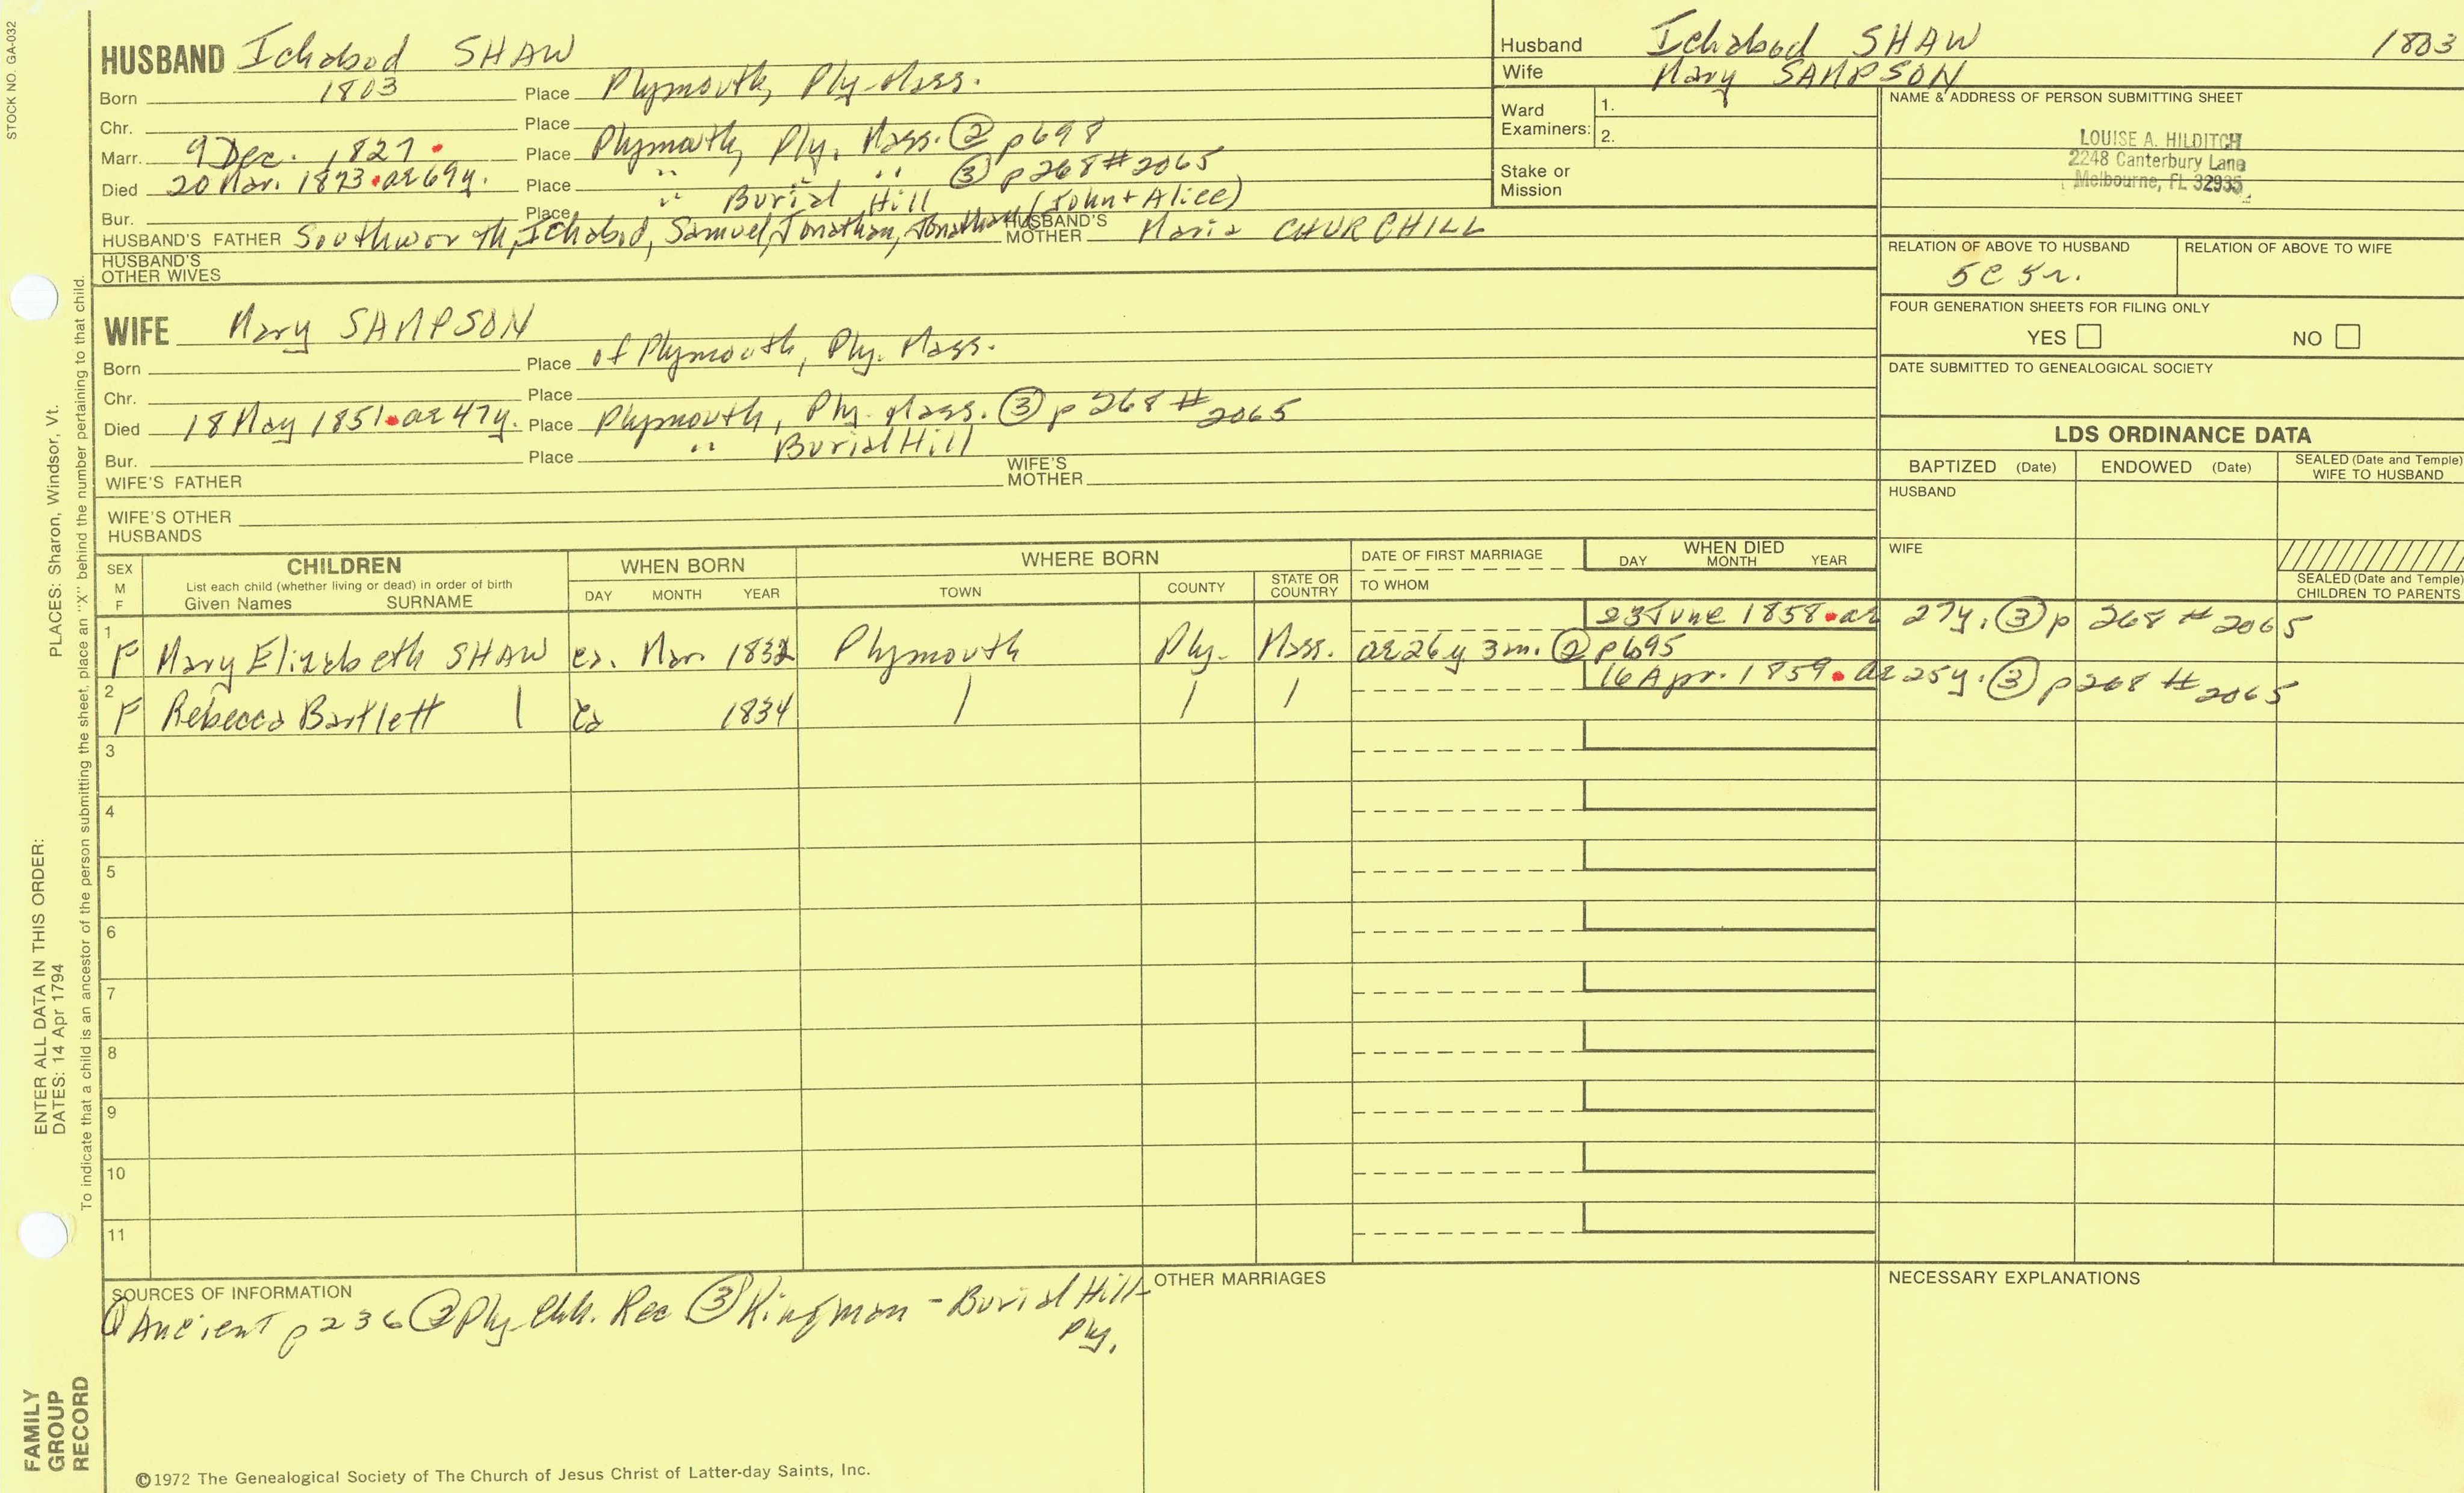 STOCK NO. GA-032
HUSBAND Ichabod SHAW
Born 1803 Place Plymouth, Ply. Mass.
Chr. Place
Marr. 9 Dec. 1827. Place Plymouth, Ply. Mass. ② p698
Died 20 Mar. 1873. ae 69y. Place " " ③ p268 #2065
Bur. Place " Burial Hill (John + Alice)
HUSBAND'S FATHER Southworth, Ichabod, Samuel, Jonathan, Jonathan HUSBAND'S MOTHER Maria CHURCHILL
HUSBAND'S OTHER WIVES
WIFE Mary SAMPSON
Born Place of Plymouth, Ply. Mass.
Chr. Place
Died 18 May 1851. ae 47y. Place Plymouth, Ply. Mass. ③ p 268 # 2065
Bur. Place " Burial Hill
WIFE'S FATHER WIFE'S MOTHER
WIFE'S OTHER HUSBANDS
Husband Ichabod SHAW 1803
Wife Mary SAMPSON
Ward Examiners: 1.
2.
Stake or Mission
NAME & ADDRESS OF PERSON SUBMITTING SHEET
LOUISE A. HILDITCH
2248 Canterbury Lane
Melbourne, FL 32935
RELATION OF ABOVE TO HUSBAND RELATION OF ABOVE TO WIFE
5C 5r.
FOUR GENERATION SHEETS FOR FILING ONLY
YES NO
DATE SUBMITTED TO GENEALOGICAL SOCIETY
LDS ORDINANCE DATA
BAPTIZED (Date) ENDOWED (Date) SEALED (Date and Temple) WIFE TO HUSBAND
HUSBAND
WIFE
SEALED (Date and Temple) CHILDREN TO PARENTS
SEX M F CHILDREN WHEN BORN WHERE BORN DATE OF FIRST MARRIAGE WHEN DIED
List each child (whether living or dead) in order of birth
Given Names SURNAME DAY MONTH YEAR TOWN COUNTY STATE OR COUNTRY TO WHOM DAY MONTH YEAR
23 June 1858. ae 27y. ③ p 268 # 2065
1 F Mary Elizabeth SHAW ca. Mar. 1832 Plymouth Ply. Mass. ae 26y 3m. ② p695
16 Apr. 1859. ae 25y. ③ p 268 # 2065
2 F Rebecca Bartlett | ca 1834 | | |
3
4
5
6
7
8
9
10
11
SOURCES OF INFORMATION
① Ancient p236 ② Ply. Chh. Rec ③ Kingman - Burial Hill-
Ply.
OTHER MARRIAGES
NECESSARY EXPLANATIONS
©1972 The Genealogical Society of The Church of Jesus Christ of Latter-day Saints, Inc.
FAMILY GROUP RECORD
ENTER ALL DATA IN THIS ORDER: PLACES: Sharon, Windsor, Vt.
DATES: 14 Apr 1794
To indicate that a child is an ancestor of the person submitting the sheet, place an "X" behind the number pertaining to that child.